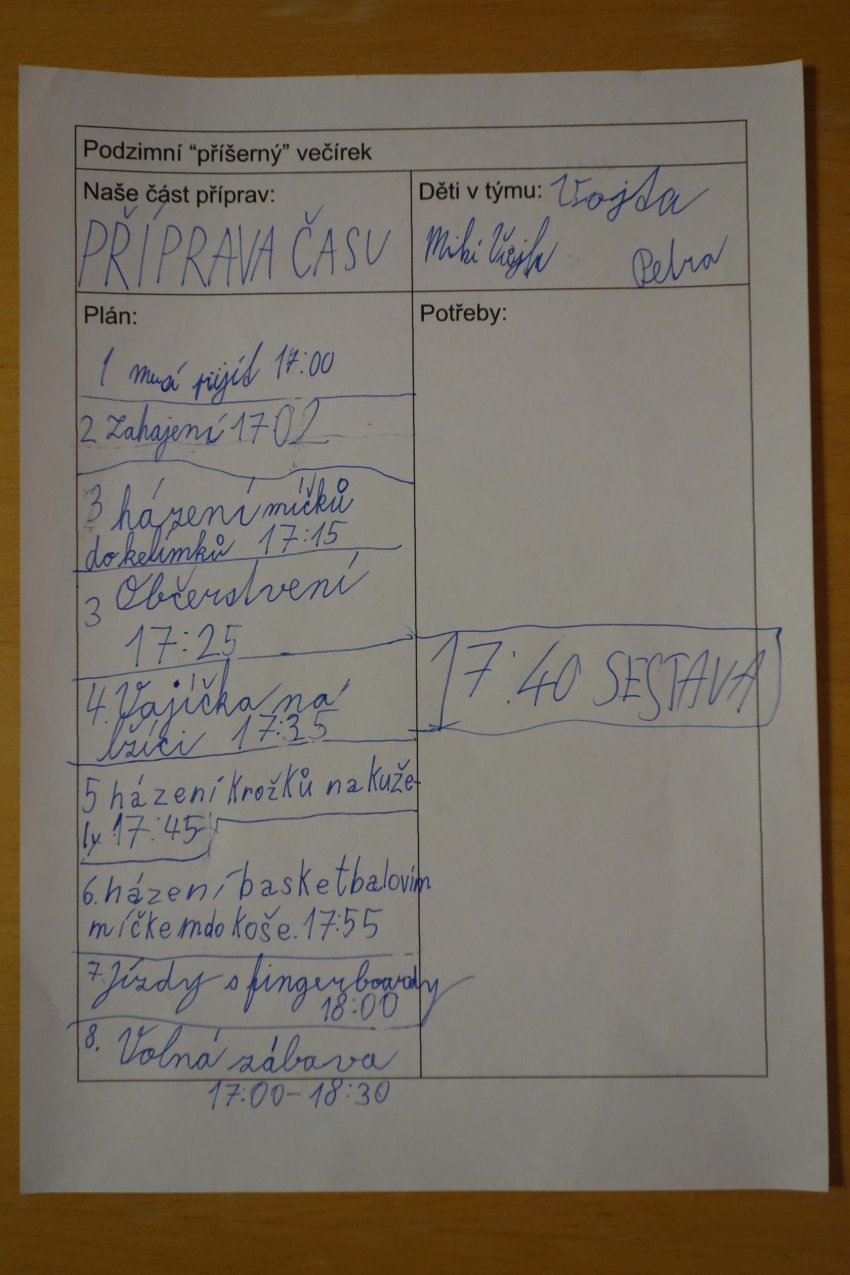 Podzimní “příšerný” večírek
Naše část příprav:
PŘÍPRAVA ČASU
Děti v týmu: Vojta
Miki
Petra
Plán:
1 musí přijít 17:00
2 Zahajení 17 02
3 házení míčků
do kelímků 17:15
3 Občerstvení
17:25
4. Vajíčka na
lžíci 17:35
5 házení krožků na kuže-
ly 17:45
6. házení basketbalovím
míčkem do koše. 17:55
7. Jízdy s fingerboardy
18:00
8. Volná zábava
17:00-18:30
Potřeby:
17:40 SESTAVA